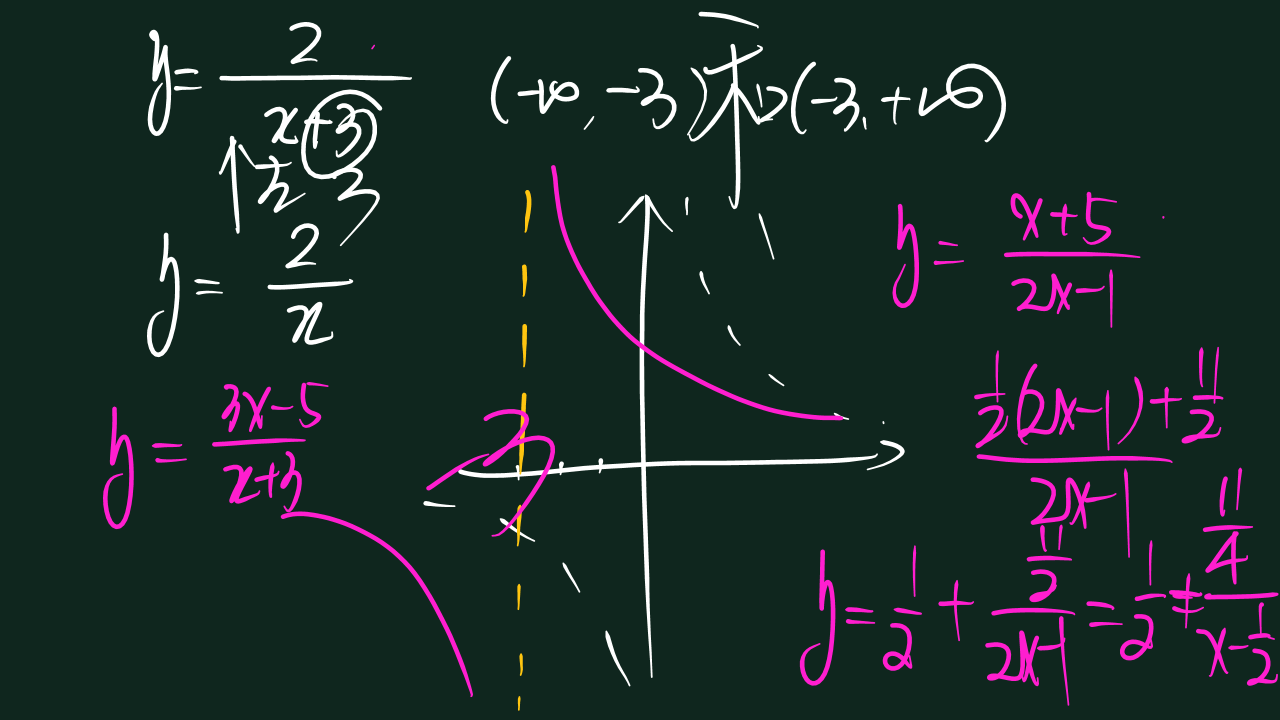 y = 2/(x+3)
(-∞, -3) 和 (-3, +∞)
左 3
y = 2/x
y = (3x-5)/(x+3)
-3
y = (x+5)/(2x-1)
(1/2(2x-1) + 11/2)/(2x-1)
y = 1/2 + (11/2)/(2x-1) = 1/2 + (11/4)/(x-1/2)